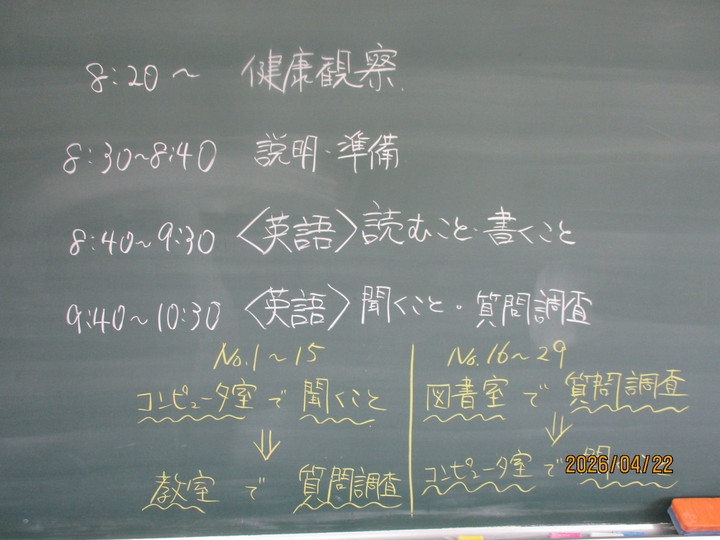 8:20～ 健康観察
8:30～8:40 説明・準備
8:40～9:30 〈英語〉読むこと・書くこと
9:40～10:30 〈英語〉聞くこと・質問調査
No.1～15
コンピュータ室で聞くこと
⇓
教室で質問調査
No.16～29
図書室で質問調査
⇓
コンピュータ室で
2026/04/22